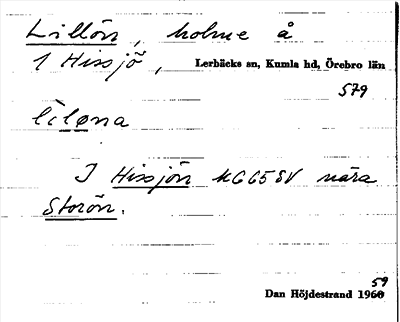 Lillön, holme å
1 Hissjö,
Lerbäcks sn, Kumla hd, Örebro län
579
I Hissjön MGG5SV nära
Storön.
59
Dan Höjdestrand 1960